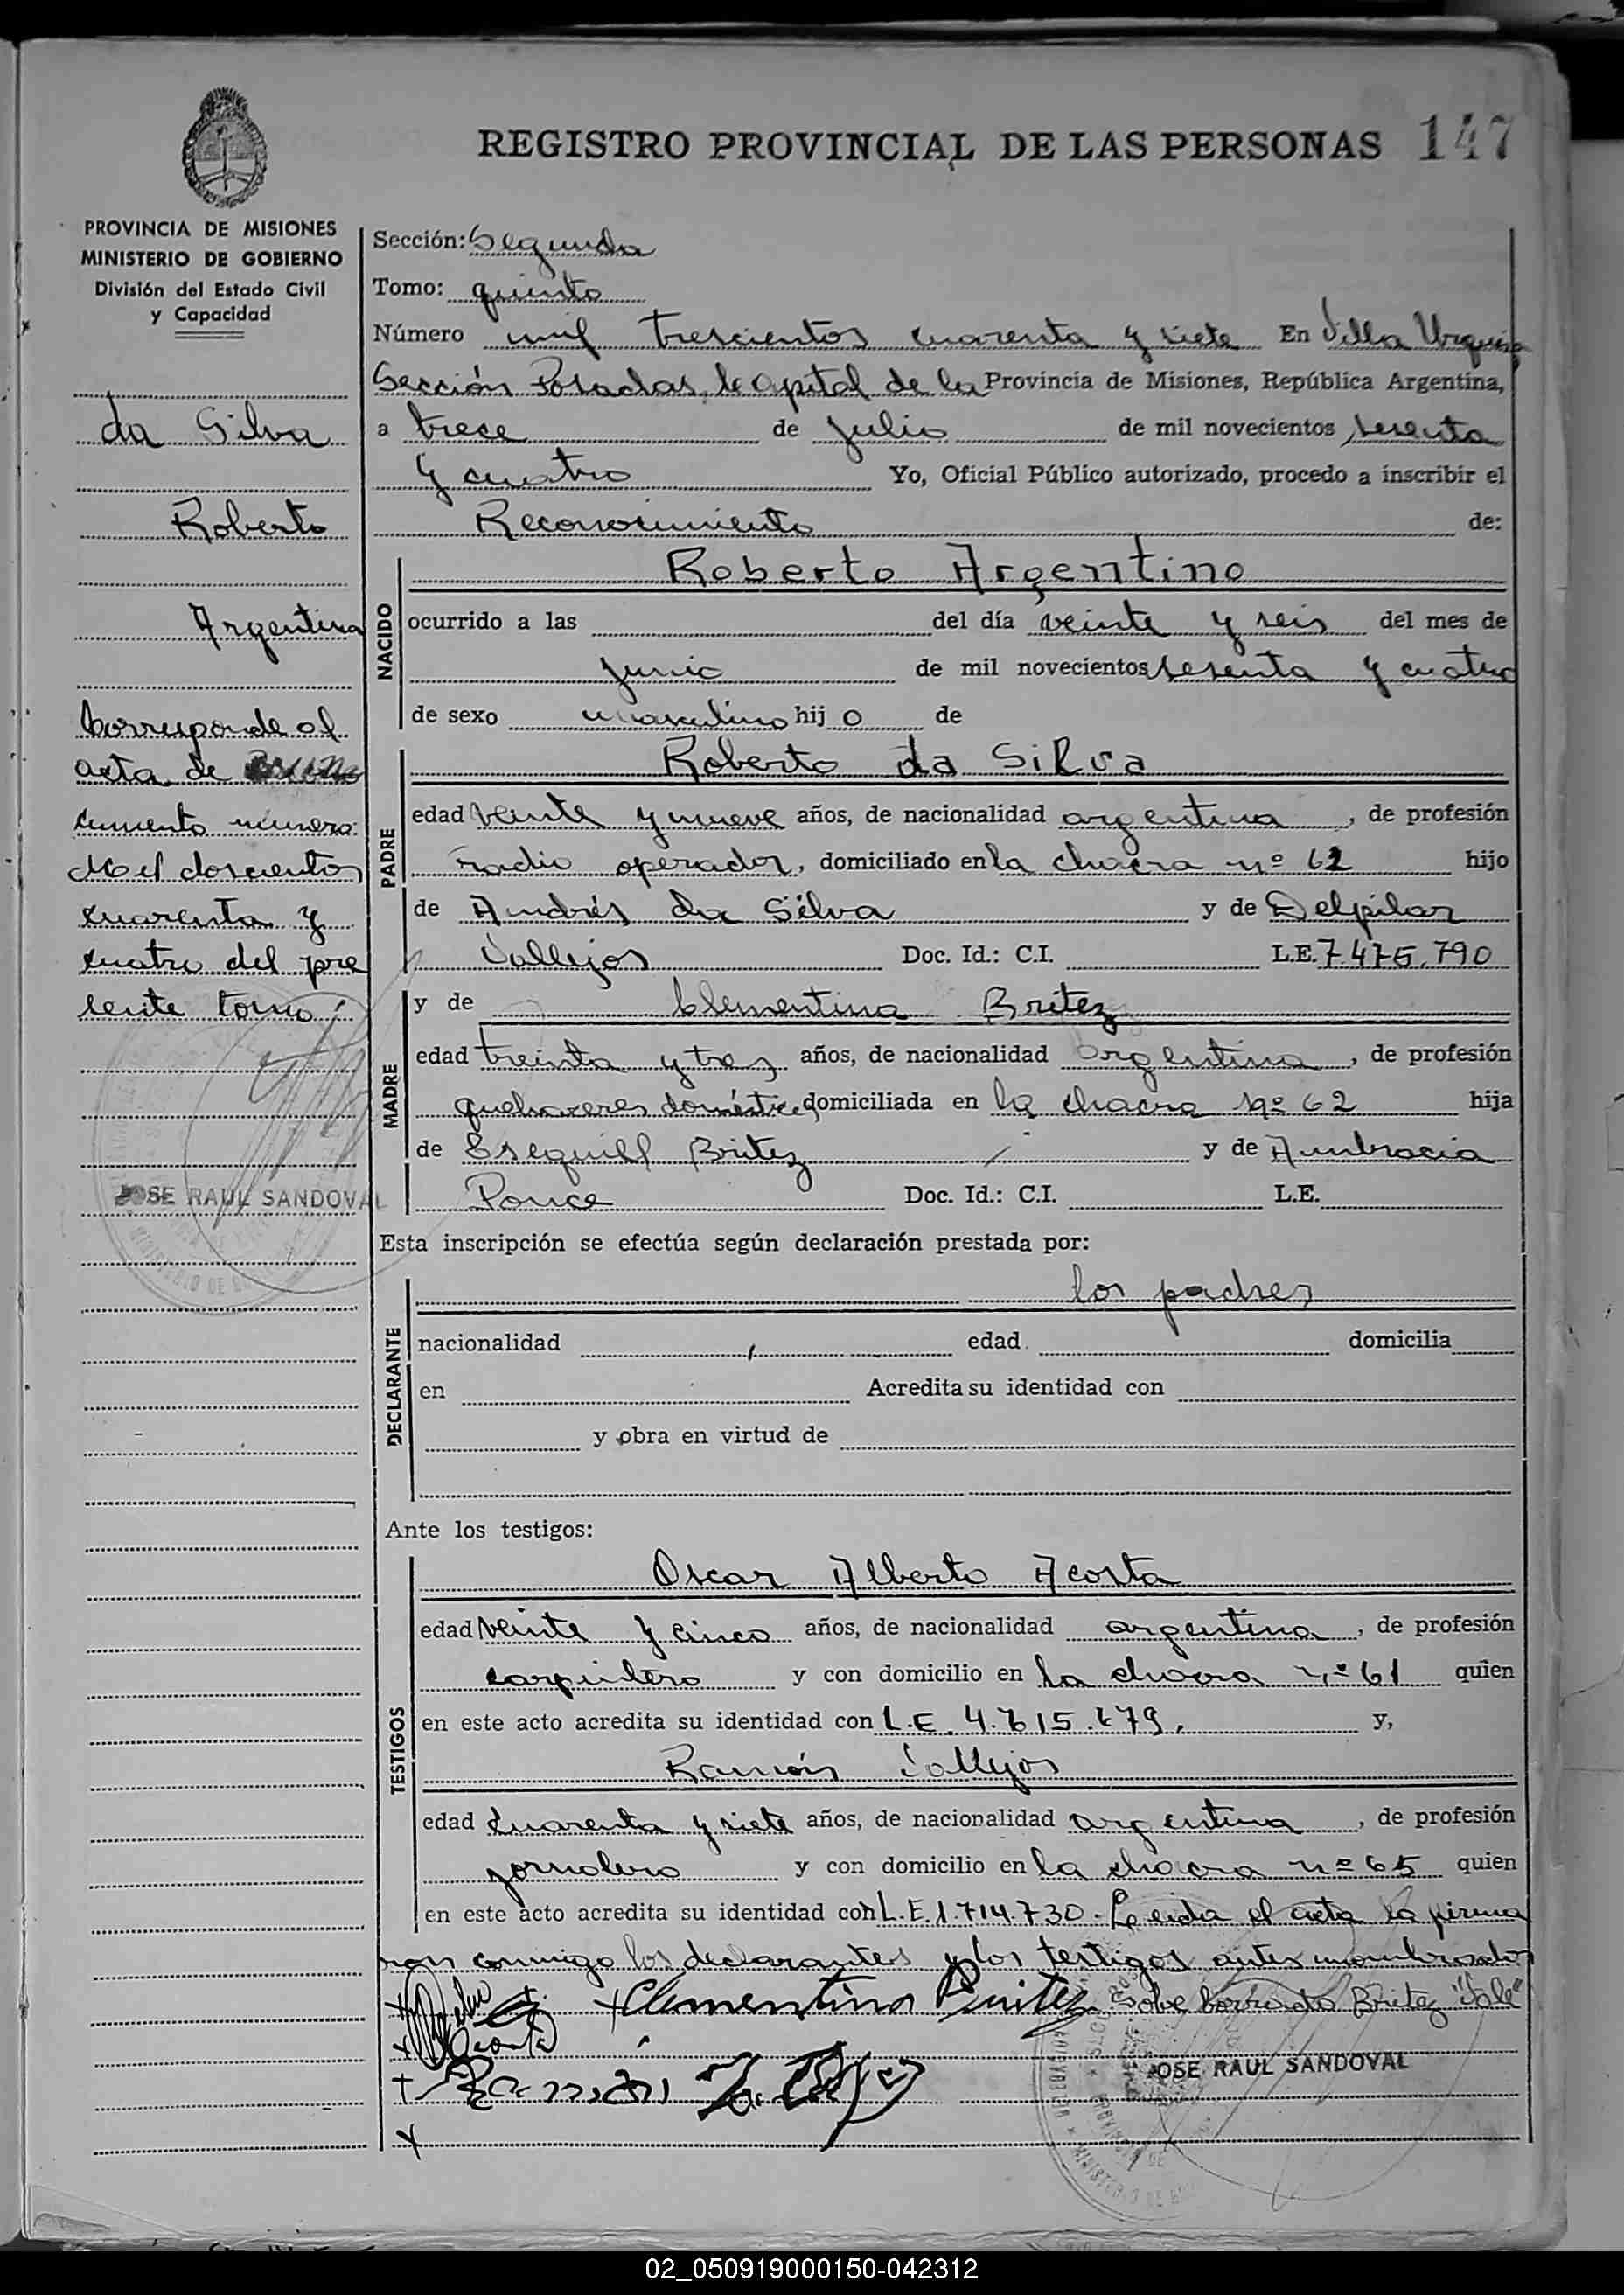 REGISTRO PROVINCIAL DE LAS PERSONAS 147
PROVINCIA DE MISIONES
MINISTERIO DE GOBIERNO
División del Estado Civil
y Capacidad
da Silva
Roberto
Argentino
Corresponde al
acta de
cimiento número:
Mil doscientos
cuarenta y
cuatro del pre
sente tomo
JOSE RAUL SANDOVAL
Sección: Segunda
Tomo: quinto
Número mil trescientos cuarenta y siete En Villa Urquiza
Sección Posadas, Capital de la Provincia de Misiones, República Argentina,
a trece de julio de mil novecientos sesenta
y cuatro Yo, Oficial Público autorizado, procedo a inscribir el
Reconocimiento de:
NACIDO
Roberto Argentino
ocurrido a las del día veinte y seis del mes de
junio de mil novecientos sesenta y cuatro
de sexo masculino hijo de
PADRE
Roberto da Silva
edad veinte y nueve años, de nacionalidad argentina, de profesión
radio operador, domiciliado en la chacra nº 62 hijo
de Andrés da Silva y de Delpilar
Vallejos Doc. Id.: C.I. L.E. 7.475.790
MADRE
y de Clementina Britez
edad treinta y tres años, de nacionalidad argentina, de profesión
quehaceres domésticos domiciliada en la chacra nº 62 hija
de Esequiel Britez y de Ambrocia
Ponce Doc. Id.: C.I. L.E.
Esta inscripción se efectúa según declaración prestada por:
DECLARANTE
los padres
nacionalidad edad domicilia
en Acredita su identidad con
y obra en virtud de
Ante los testigos:
TESTIGOS
Oscar Alberto Acosta
edad veinte y cinco años, de nacionalidad argentina, de profesión
carpintero y con domicilio en la chacra nº 61 quien
en este acto acredita su identidad con L.E. y,
Ramón Vallejos
edad cuarenta y siete años, de nacionalidad argentina, de profesión
jornalero y con domicilio en la chacra nº 65 quien
en este acto acredita su identidad con L.E. 1.714.730. Leida el acta la firma
ron conmigo los declarantes y los testigos antes nombrados
Clementina Britez Sobre borrado Britez "Vale"
Acosta
Ramón
JOSE RAUL SANDOVAL
02_050919000150-042312